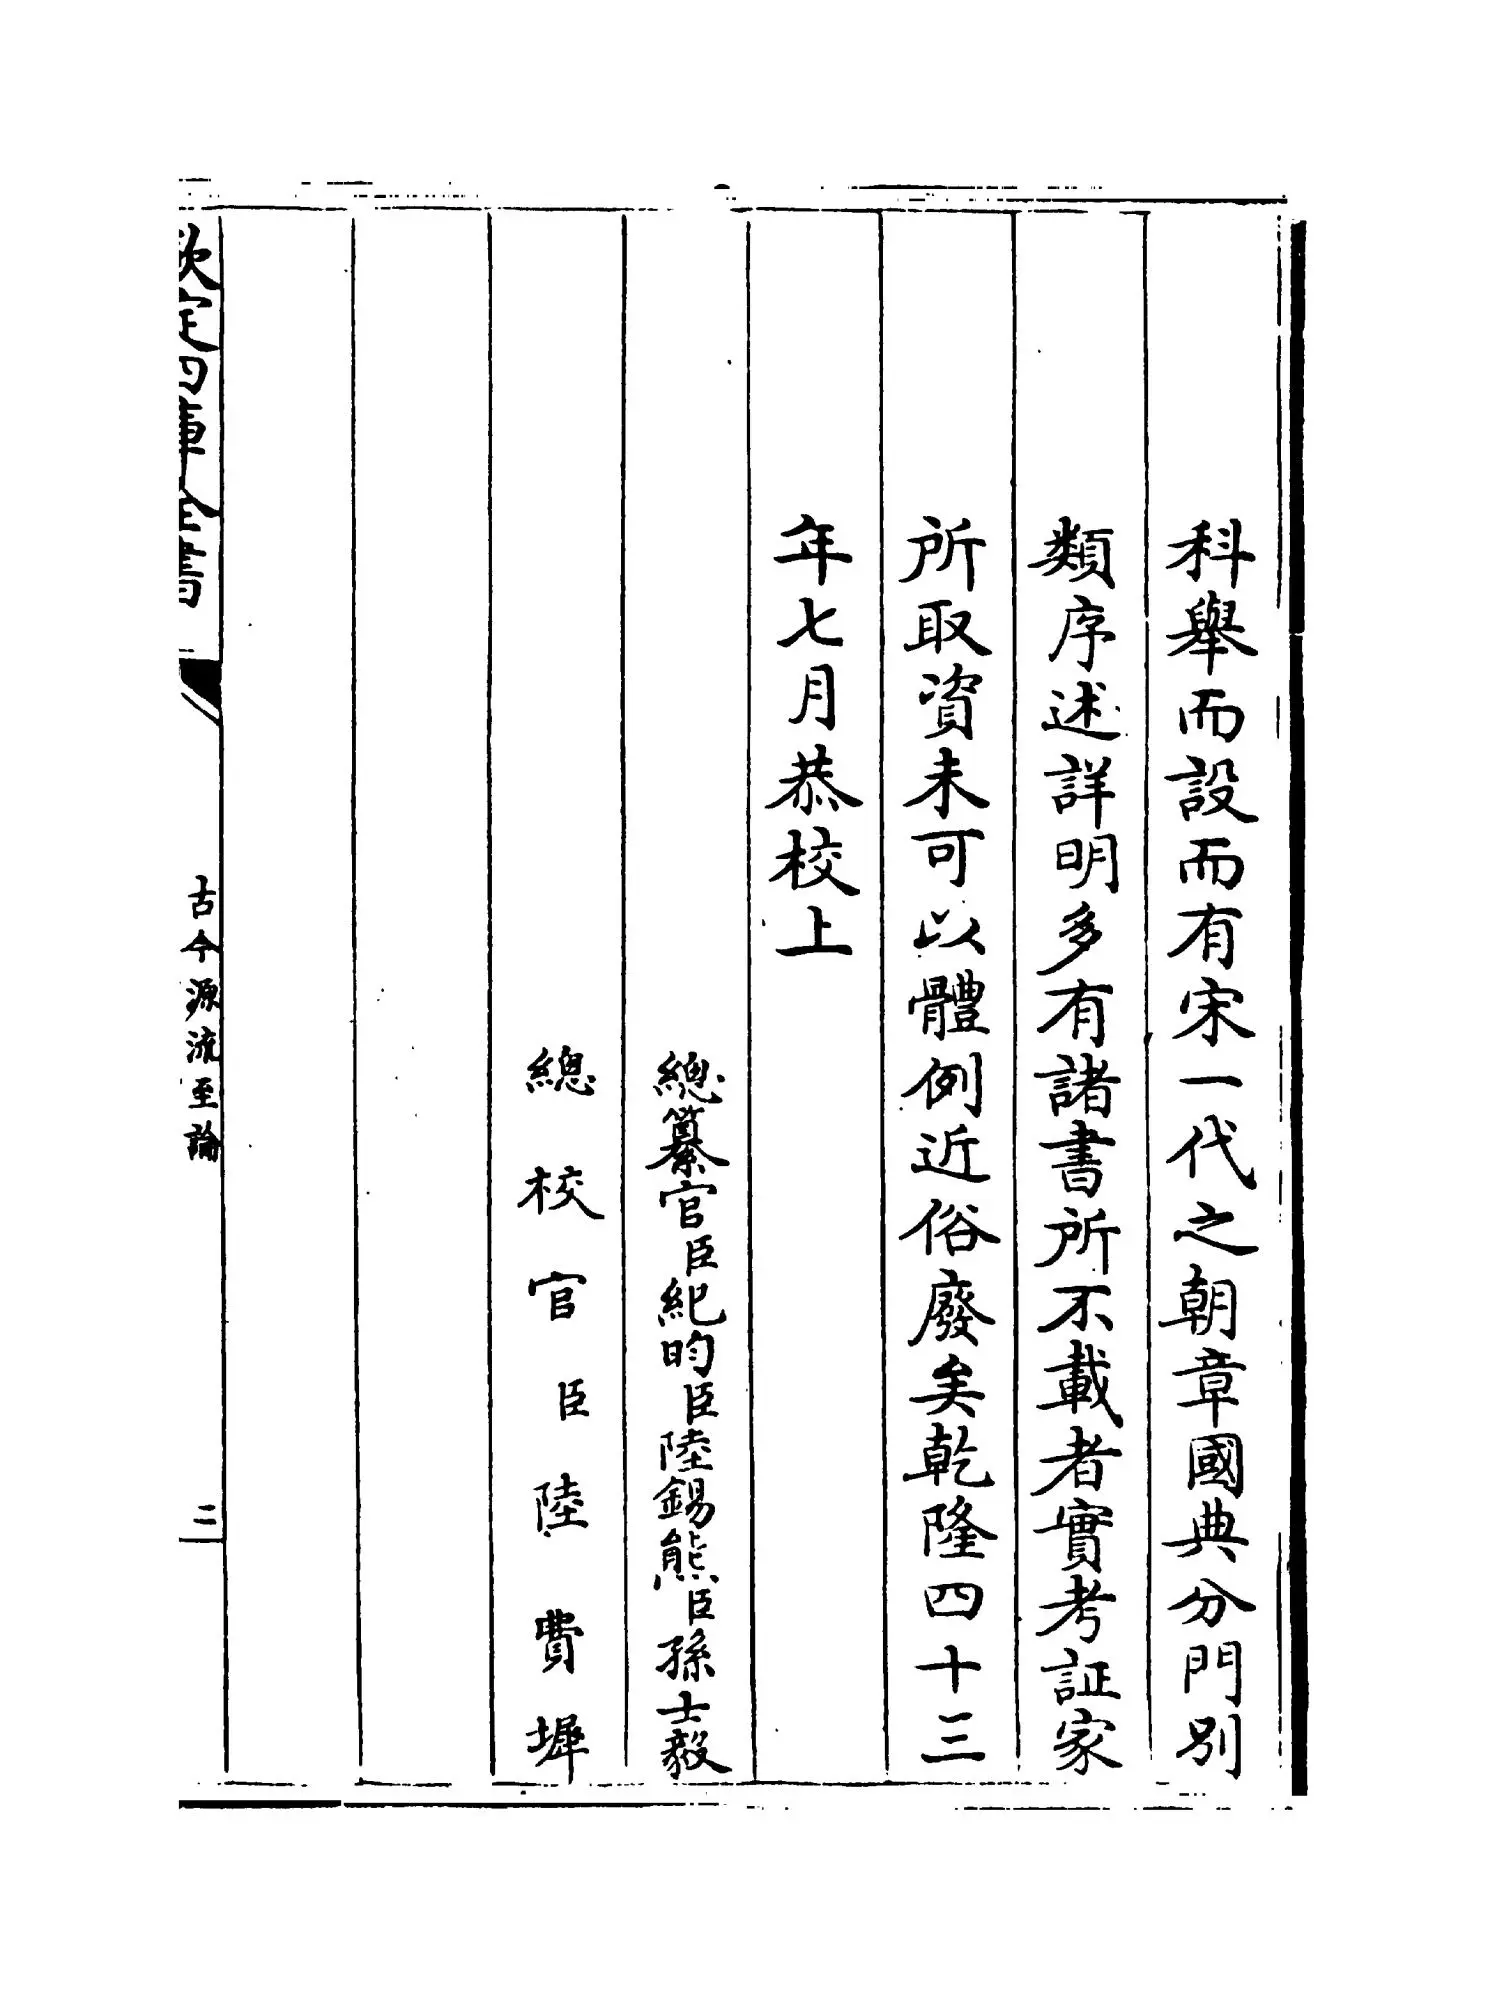 科舉而設而有宋一代之朝章國典分門別
類序述詳明多有諸書所不載者實考証家
所取資未可以體例近俗廢矣乾隆四十三
年七月恭校上
總纂官臣紀昀臣陸錫熊臣孫士毅
總校官臣陸費墀
欽定四庫全書
古今源流至論
二